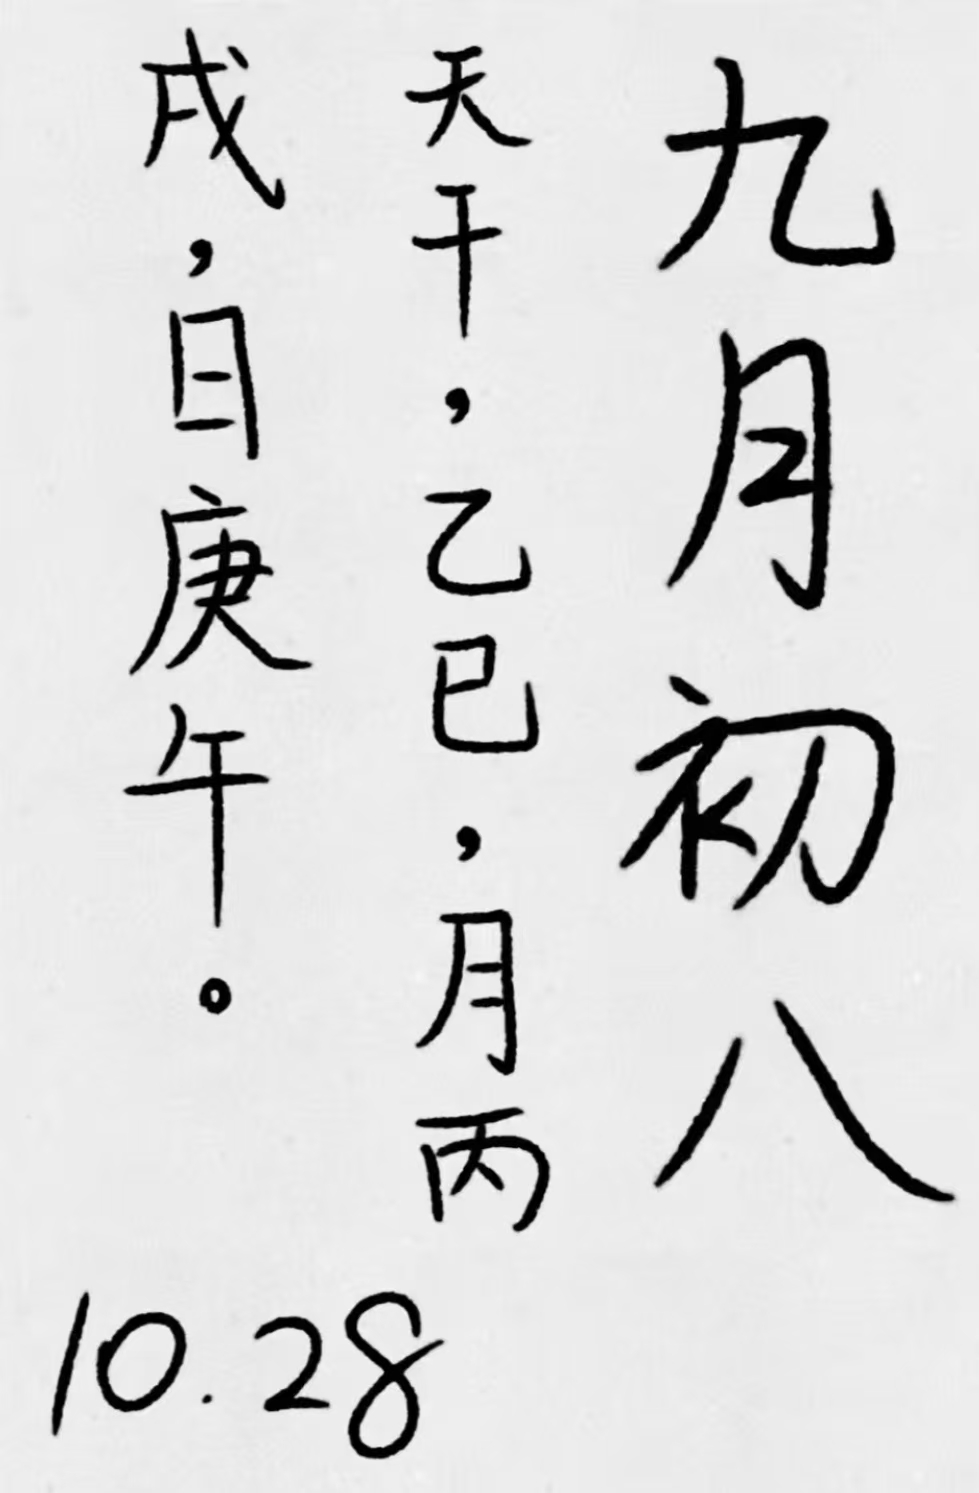 九月初八
天干，乙巳，月丙
戌，日庚午。
10.28